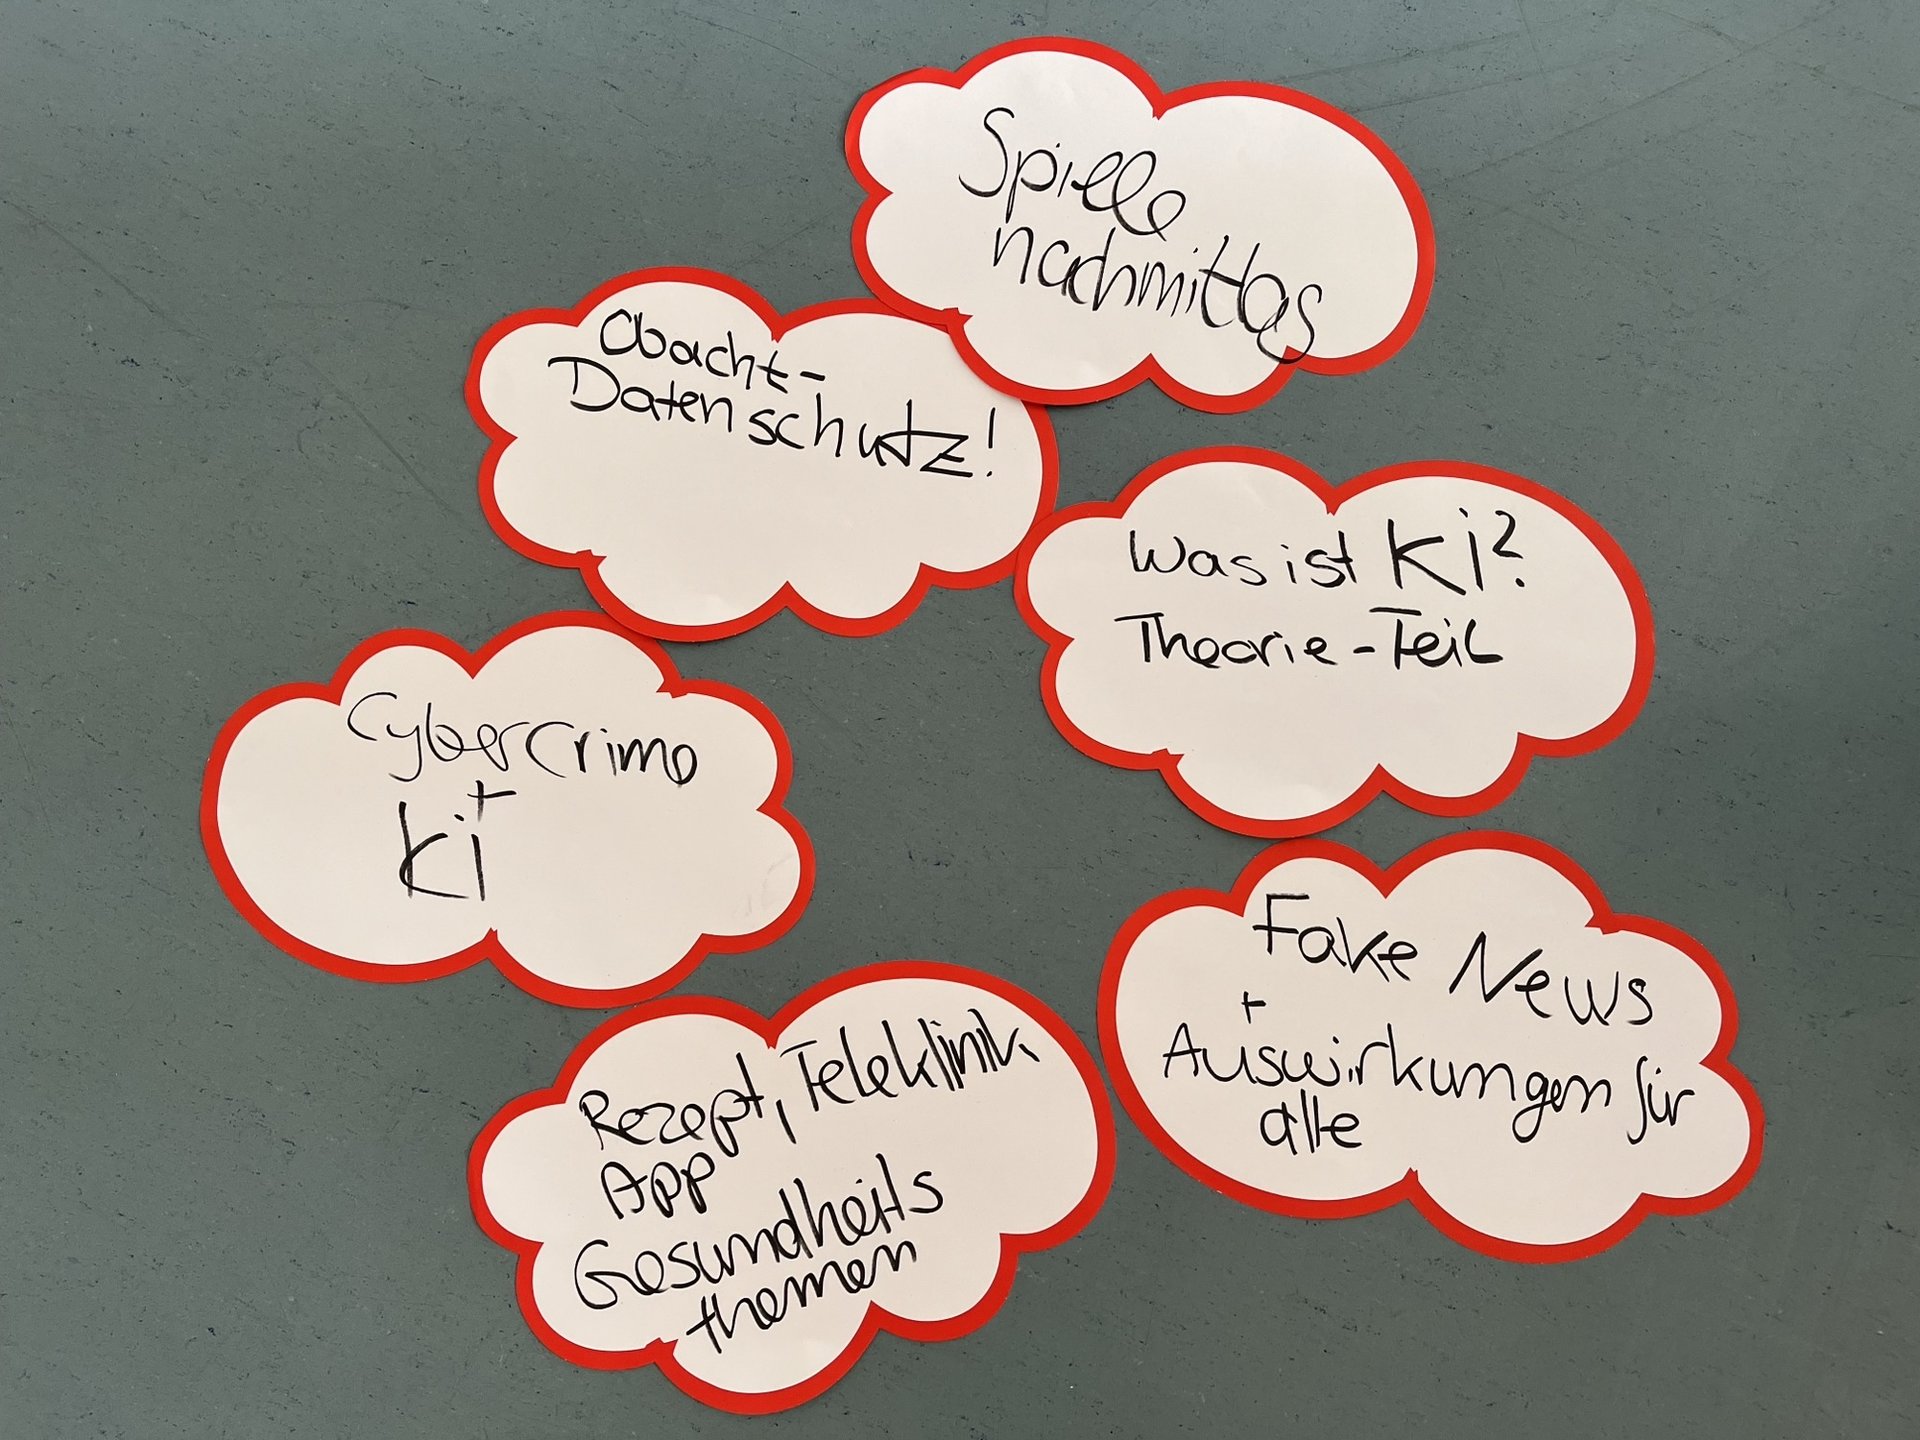 Spiele
nachmittag
Obacht-
Datenschutz!
Was ist Ki?
Theorie-Teil
Cybercrime
+
Ki
Fake News
+
Auswirkungen für
alle
Rezept, Teleklinik
App
Gesundheits
themen